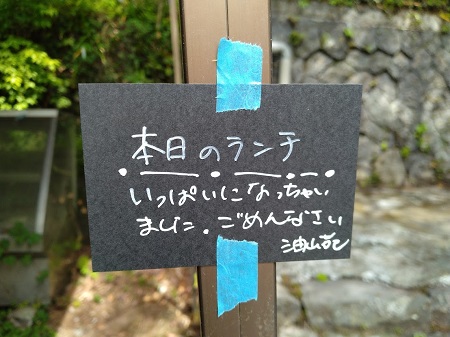 本日のランチ
いっぱいになっちゃい
ました。ごめんなさい